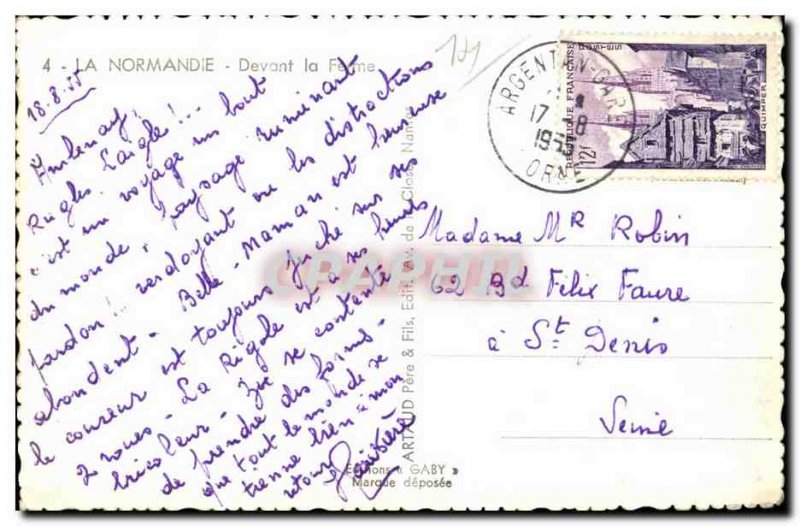 4 - LA NORMANDIE - Devant la Ferme
18.8.55
Aulenay!
Rugles. L'aigle!...
c'est un voyage au bout
du monde. Paysage ruminant
pardon!! verdoyant où les distractions
abondent - Belle-Maman est heureuse
le coureur est toujours juché sur ses
2 roues - La Rigole est à ses heures
bricoleur - Zize se contente
de prendre des forms -
que tout le monde se
tienne bien à mon
retour
ARTAUD Père & Fils, Edit., Av. de la Close, Nantes
Editions « GABY »
Marque déposée
ARGENTAN-GARE
17 -8
1955
ORNE
REPUBLIQUE FRANÇAISE
POSTES
12F
QUIMPER
Madame Mr Robin
62 Bd Félix Faure
à St Denis
Seine
CPAPHIL